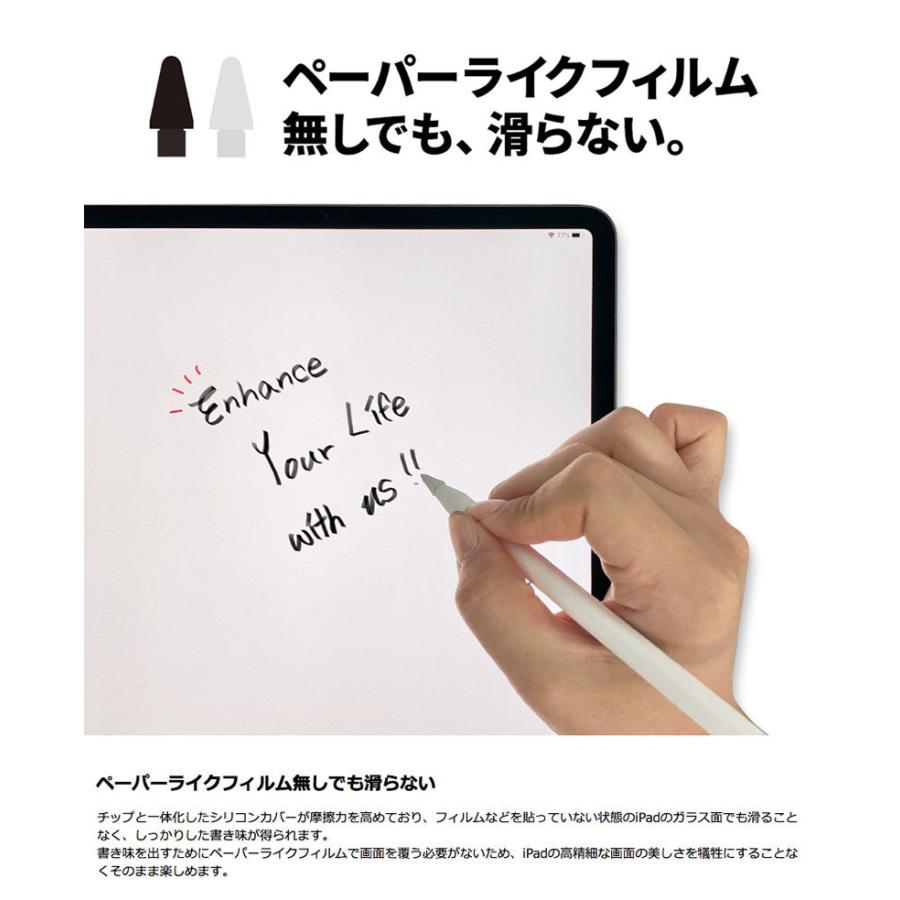 ペーパーライクフィルム
無しでも、滑らない。
77%
Enhance
Your Life
with us!!
ペーパーライクフィルム無しでも滑らない
チップと一体化したシリコンカバーが摩擦力を高めており、フィルムなどを貼っていない状態のiPadのガラス面でも滑ること
なく、しっかりした書き味が得られます。
書き味を出すためにペーパーライクフィルムで画面を覆う必要がないため、iPadの高精細な画面の美しさを犠牲にすることな
くそのまま楽しめます。